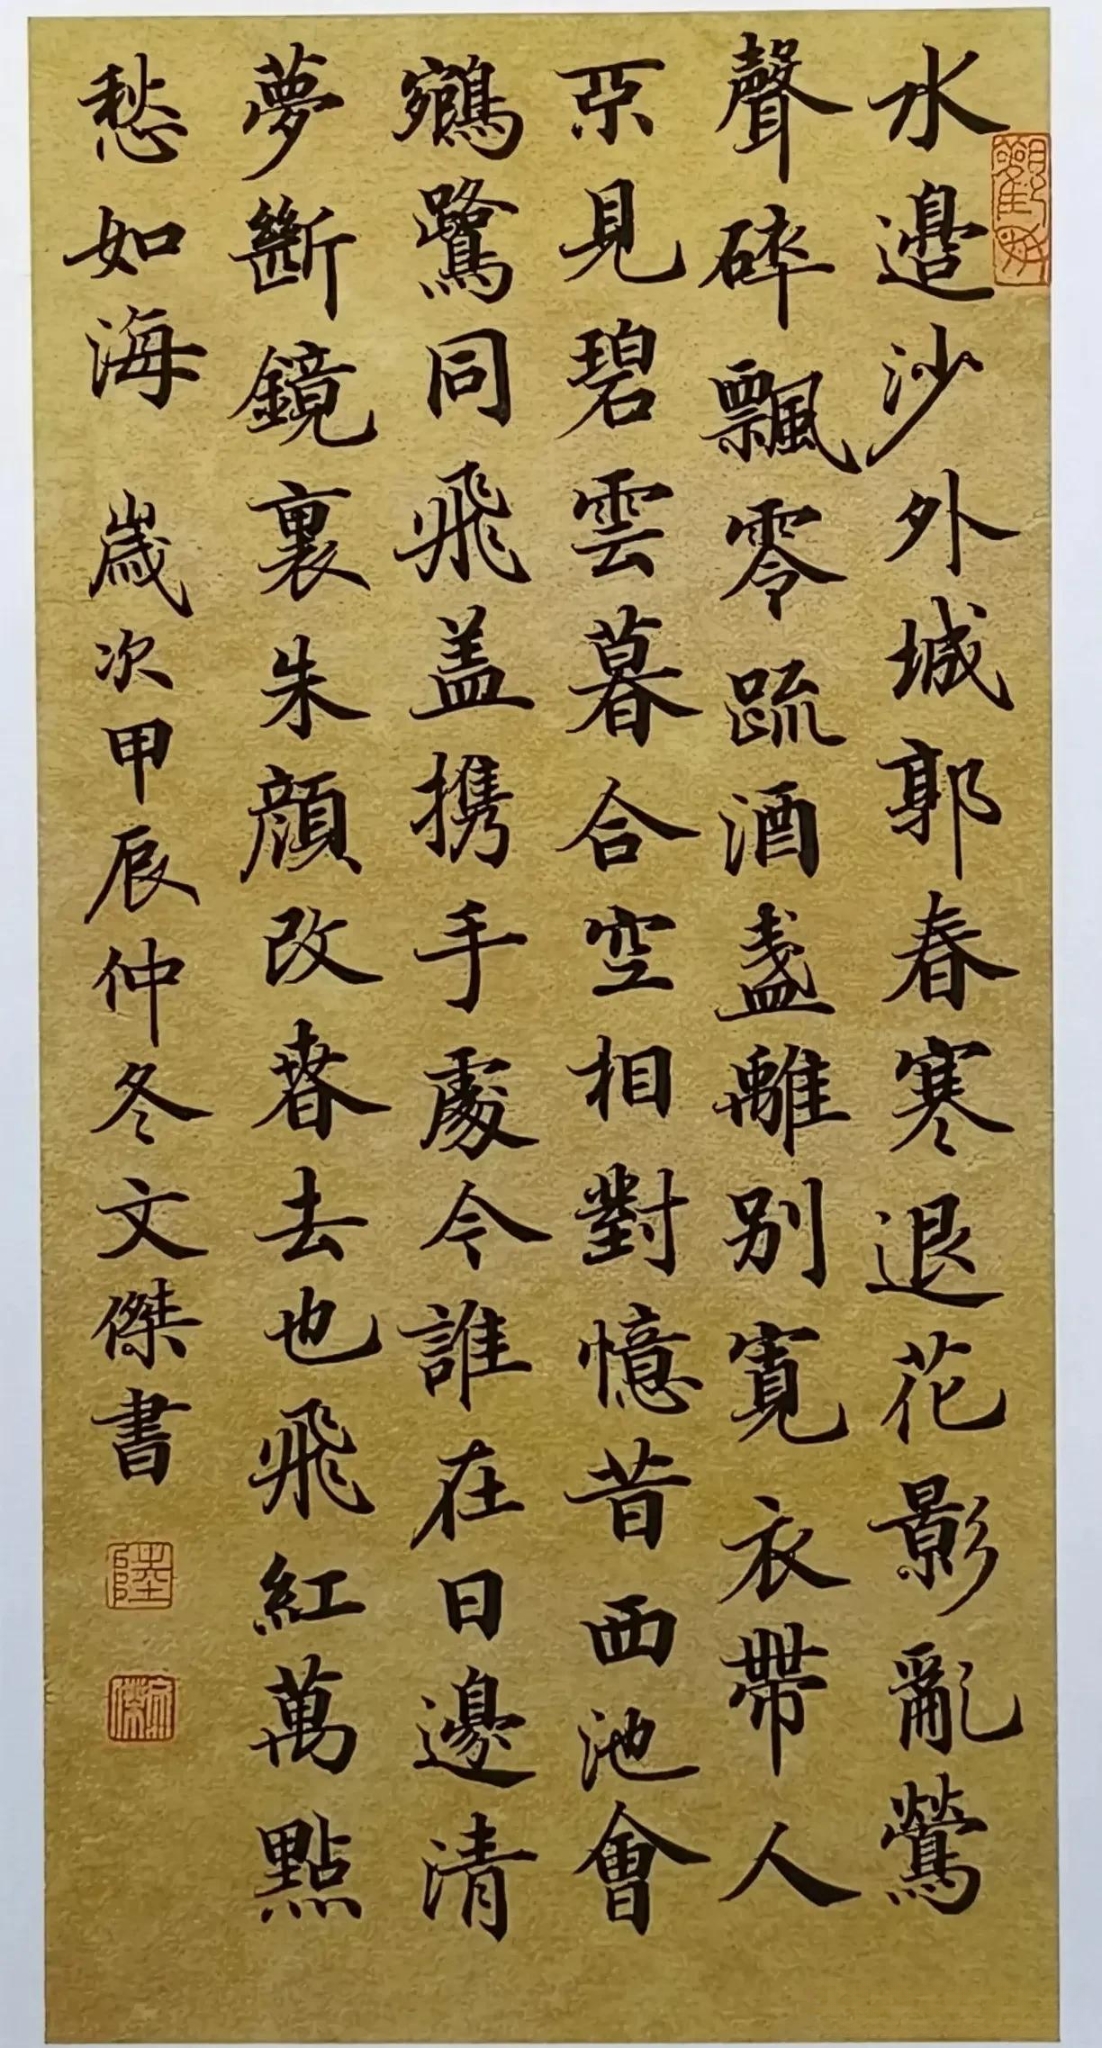 水邊沙外城郭春寒退花影亂鶯
聲碎飄零疏酒盞離別寬衣帶人
不見碧雲暮合空相對憶昔西池會
鵷鷺同飛盖携手處令誰在日邊清
夢斷鏡裏朱顔改春去也飛紅萬點
愁如海 歲次甲辰仲冬文傑書
陸
文傑